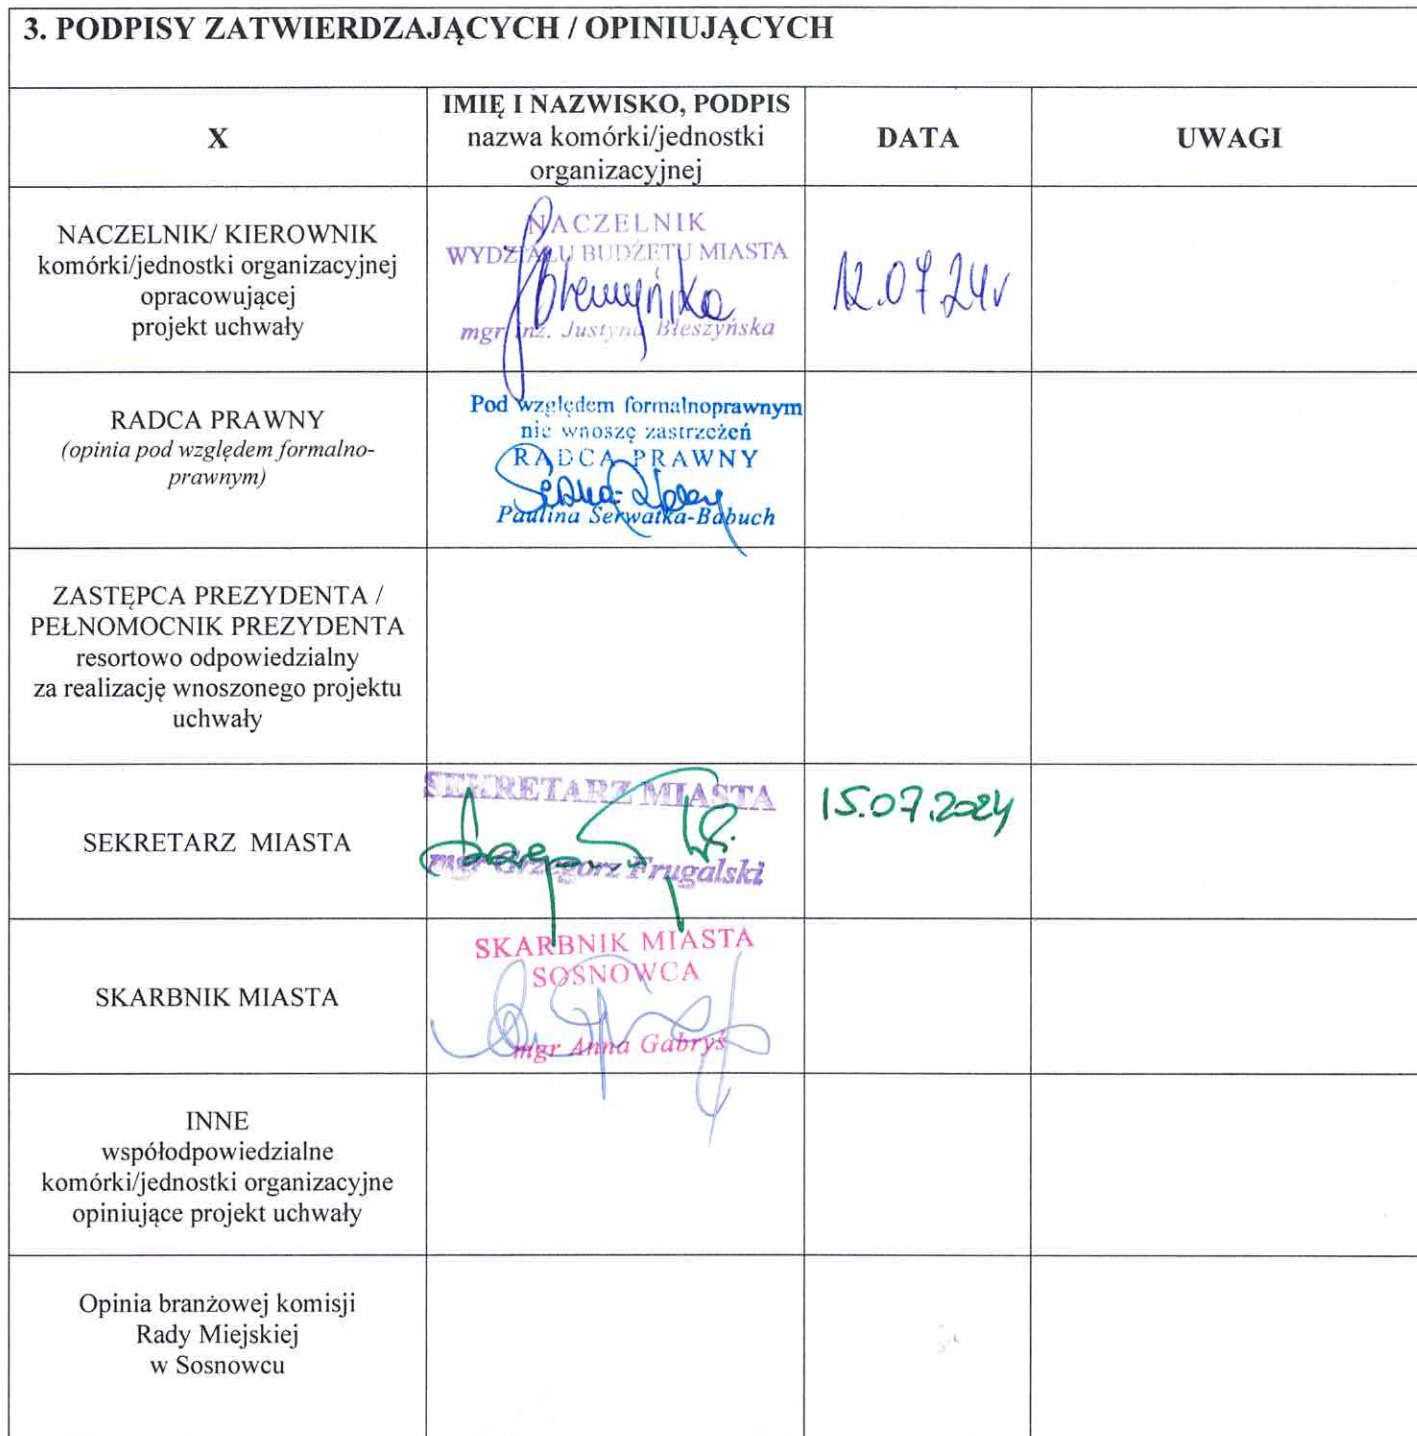 3. PODPISY ZATWIERDZAJĄCYCH / OPINIUJĄCYCH
X
IMIĘ I NAZWISKO, PODPIS
nazwa komórki/jednostki
organizacyjnej
DATA
UWAGI
NACZELNIK/ KIEROWNIK
komórki/jednostki organizacyjnej
opracowującej
projekt uchwały
NACZELNIK
WYDZIAŁU BUDŻETU MIASTA
mgr inż. Justyna Błeszyńska
12.07.24r
RADCA PRAWNY
(opinia pod względem formalno-
prawnym)
Pod względem formalnoprawnym
nie wnoszę zastrzeżeń
RADCA PRAWNY
Paulina Serwatka-Babuch
ZASTĘPCA PREZYDENTA /
PEŁNOMOCNIK PREZYDENTA
resortowo odpowiedzialny
za realizację wnoszonego projektu
uchwały
SEKRETARZ MIASTA
SEKRETARZ MIASTA
mgr Grzegorz Frugalski
15.07.2024
SKARBNIK MIASTA
SKARBNIK MIASTA
SOSNOWCA
mgr Anna Gabryś
INNE
współodpowiedzialne
komórki/jednostki organizacyjne
opiniujące projekt uchwały
Opinia branżowej komisji
Rady Miejskiej
w Sosnowcu